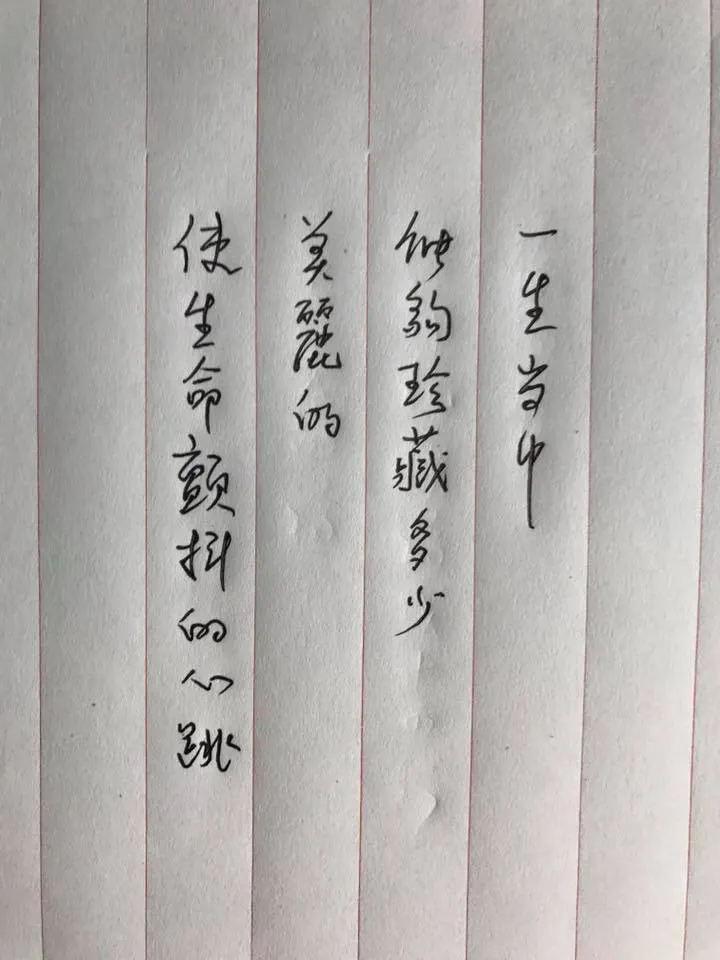 一生当中
能夠珍藏多少
美麗的
使生命顫抖的心跳